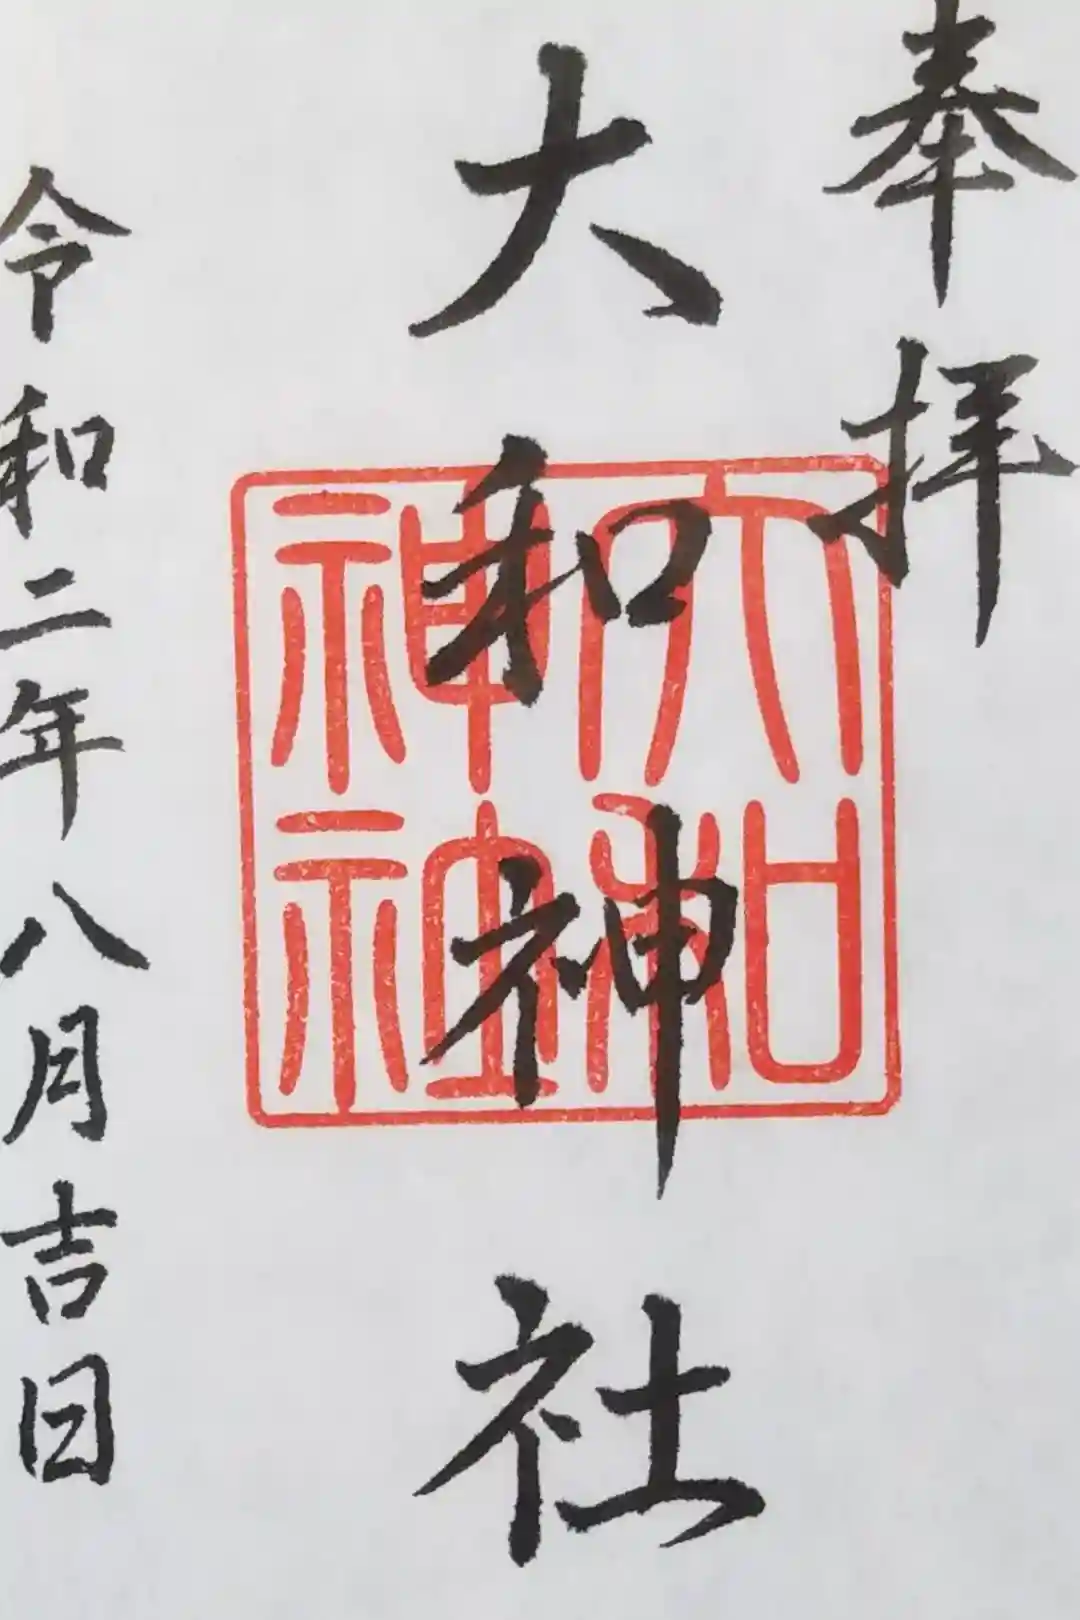 奉拝
大和神社
大和神社
令和二年八月吉日